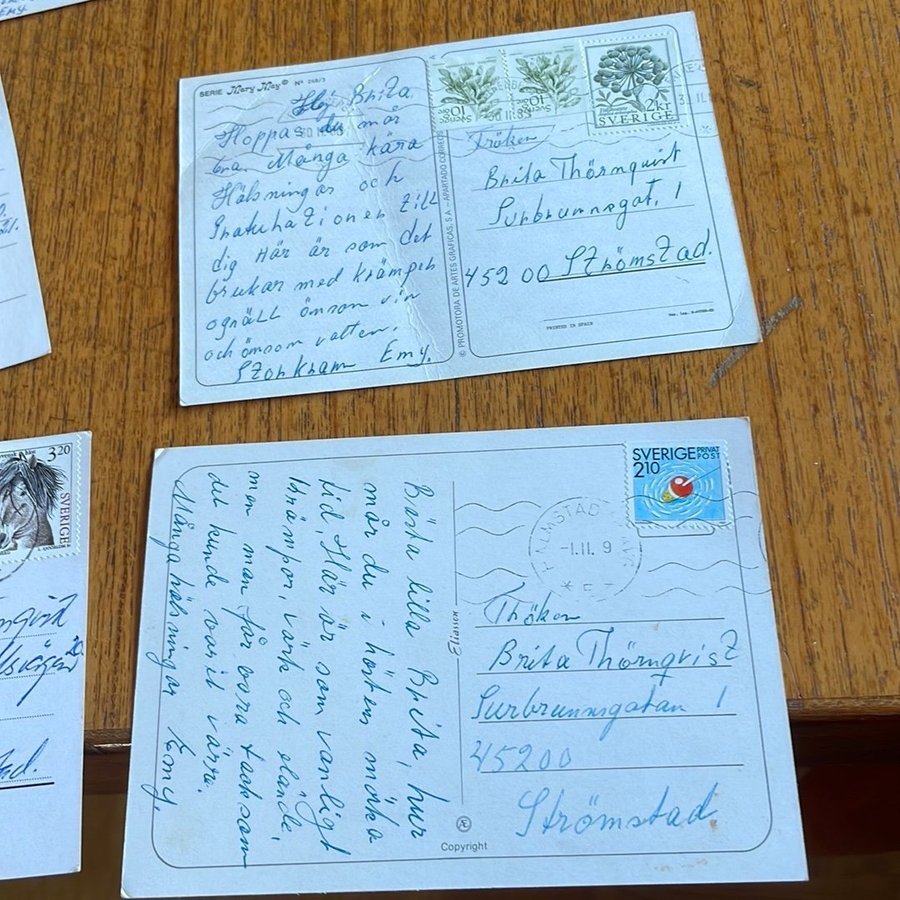 Emy
SERIE Mary May® Nº 268/3
Hej Brita
Hoppas du mår
bra. Många kära
Hälsningar och
Gratulationer till
dig Här är som det
brukar med krämper
ognäll ömsom vin
och ömsom vatten.
Storkram Emy.
© PROMOTORA DE ARTES GRAFICAS, S.A. - APARTADO CORREOS
SVERIGE 10
SVERIGE 10
2kr
SVERIGE
30 11. 83
Fröken
Brita Thörnquist
Surbrunnsgat. 1
45200 Strömstad.
PRINTED IN SPAIN
3.20
SVERIGE
Bästa lilla Brita, hur
mår du i hösten mörka
tid, Här är som vanligt
krämpor, värk och elände,
men man får vara tacksam
det kunde varit värre.
Många hälsningar Emy.
SVERIGE PRIVAT
210 POST
HALMSTAD
-1.11.9
Eliasson
Fröken
Brita Thörnqvist
Surbrunnsgatan 1
45200
Strömstad
Æ
Copyright